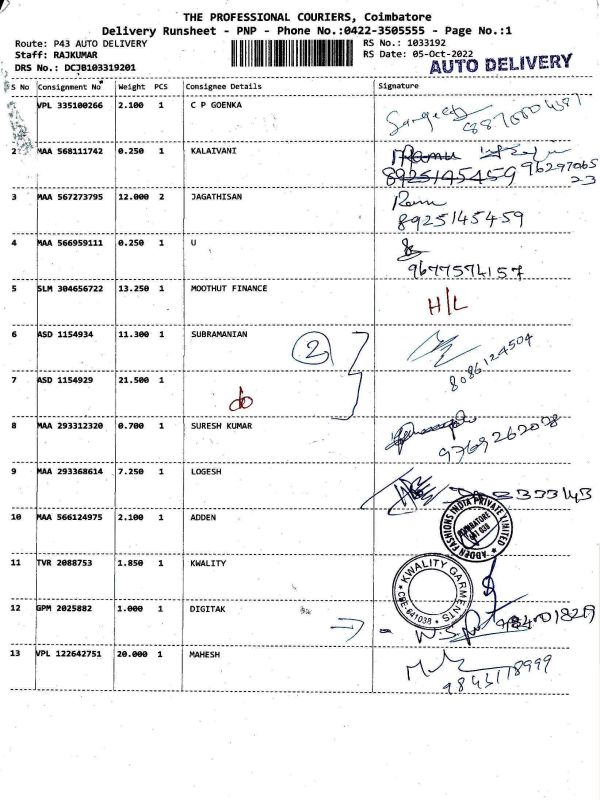 THE PROFESSIONAL COURIERS, Coimbatore
Delivery Runsheet - PNP - Phone No.:0422-3505555 - Page No.:1
Route: P43 AUTO DELIVERY RS No.: 1033192
Staff: RAJKUMAR RS Date: 05-Oct-2022
DRS No.: DCJB103319201 AUTO DELIVERY
S No Consignment No Weight PCS Consignee Details Signature
VPL 335100266 2.100 1 C P GOENKA
2 MAA 568111742 0.250 1 KALAIVANI
8925145459
3 MAA 567273795 12.000 2 JAGATHISAN Ramu
8925145459
4 MAA 566959111 0.250 1 U
9677574157
5 SLM 304656722 13.250 1 MOOTHUT FINANCE H/L
6 ASD 1154934 11.300 1 SUBRAMANIAN 2
8086124504
7 ASD 1154929 21.500 1 do
8 MAA 293312320 0.700 1 SURESH KUMAR
9769262028
9 MAA 293368614 7.250 1 LOGESH
333143
10 MAA 566124975 2.100 1 ADDEN FASHIONS INDIA PRIVATE LIMITED
11 TVR 2088753 1.850 1 KWALITY
KWALITY GARMENTS
CBE-641038
12 GPM 2025882 1.000 1 DIGITAK
13 VPL 122642751 20.000 1 MAHESH
9843118999